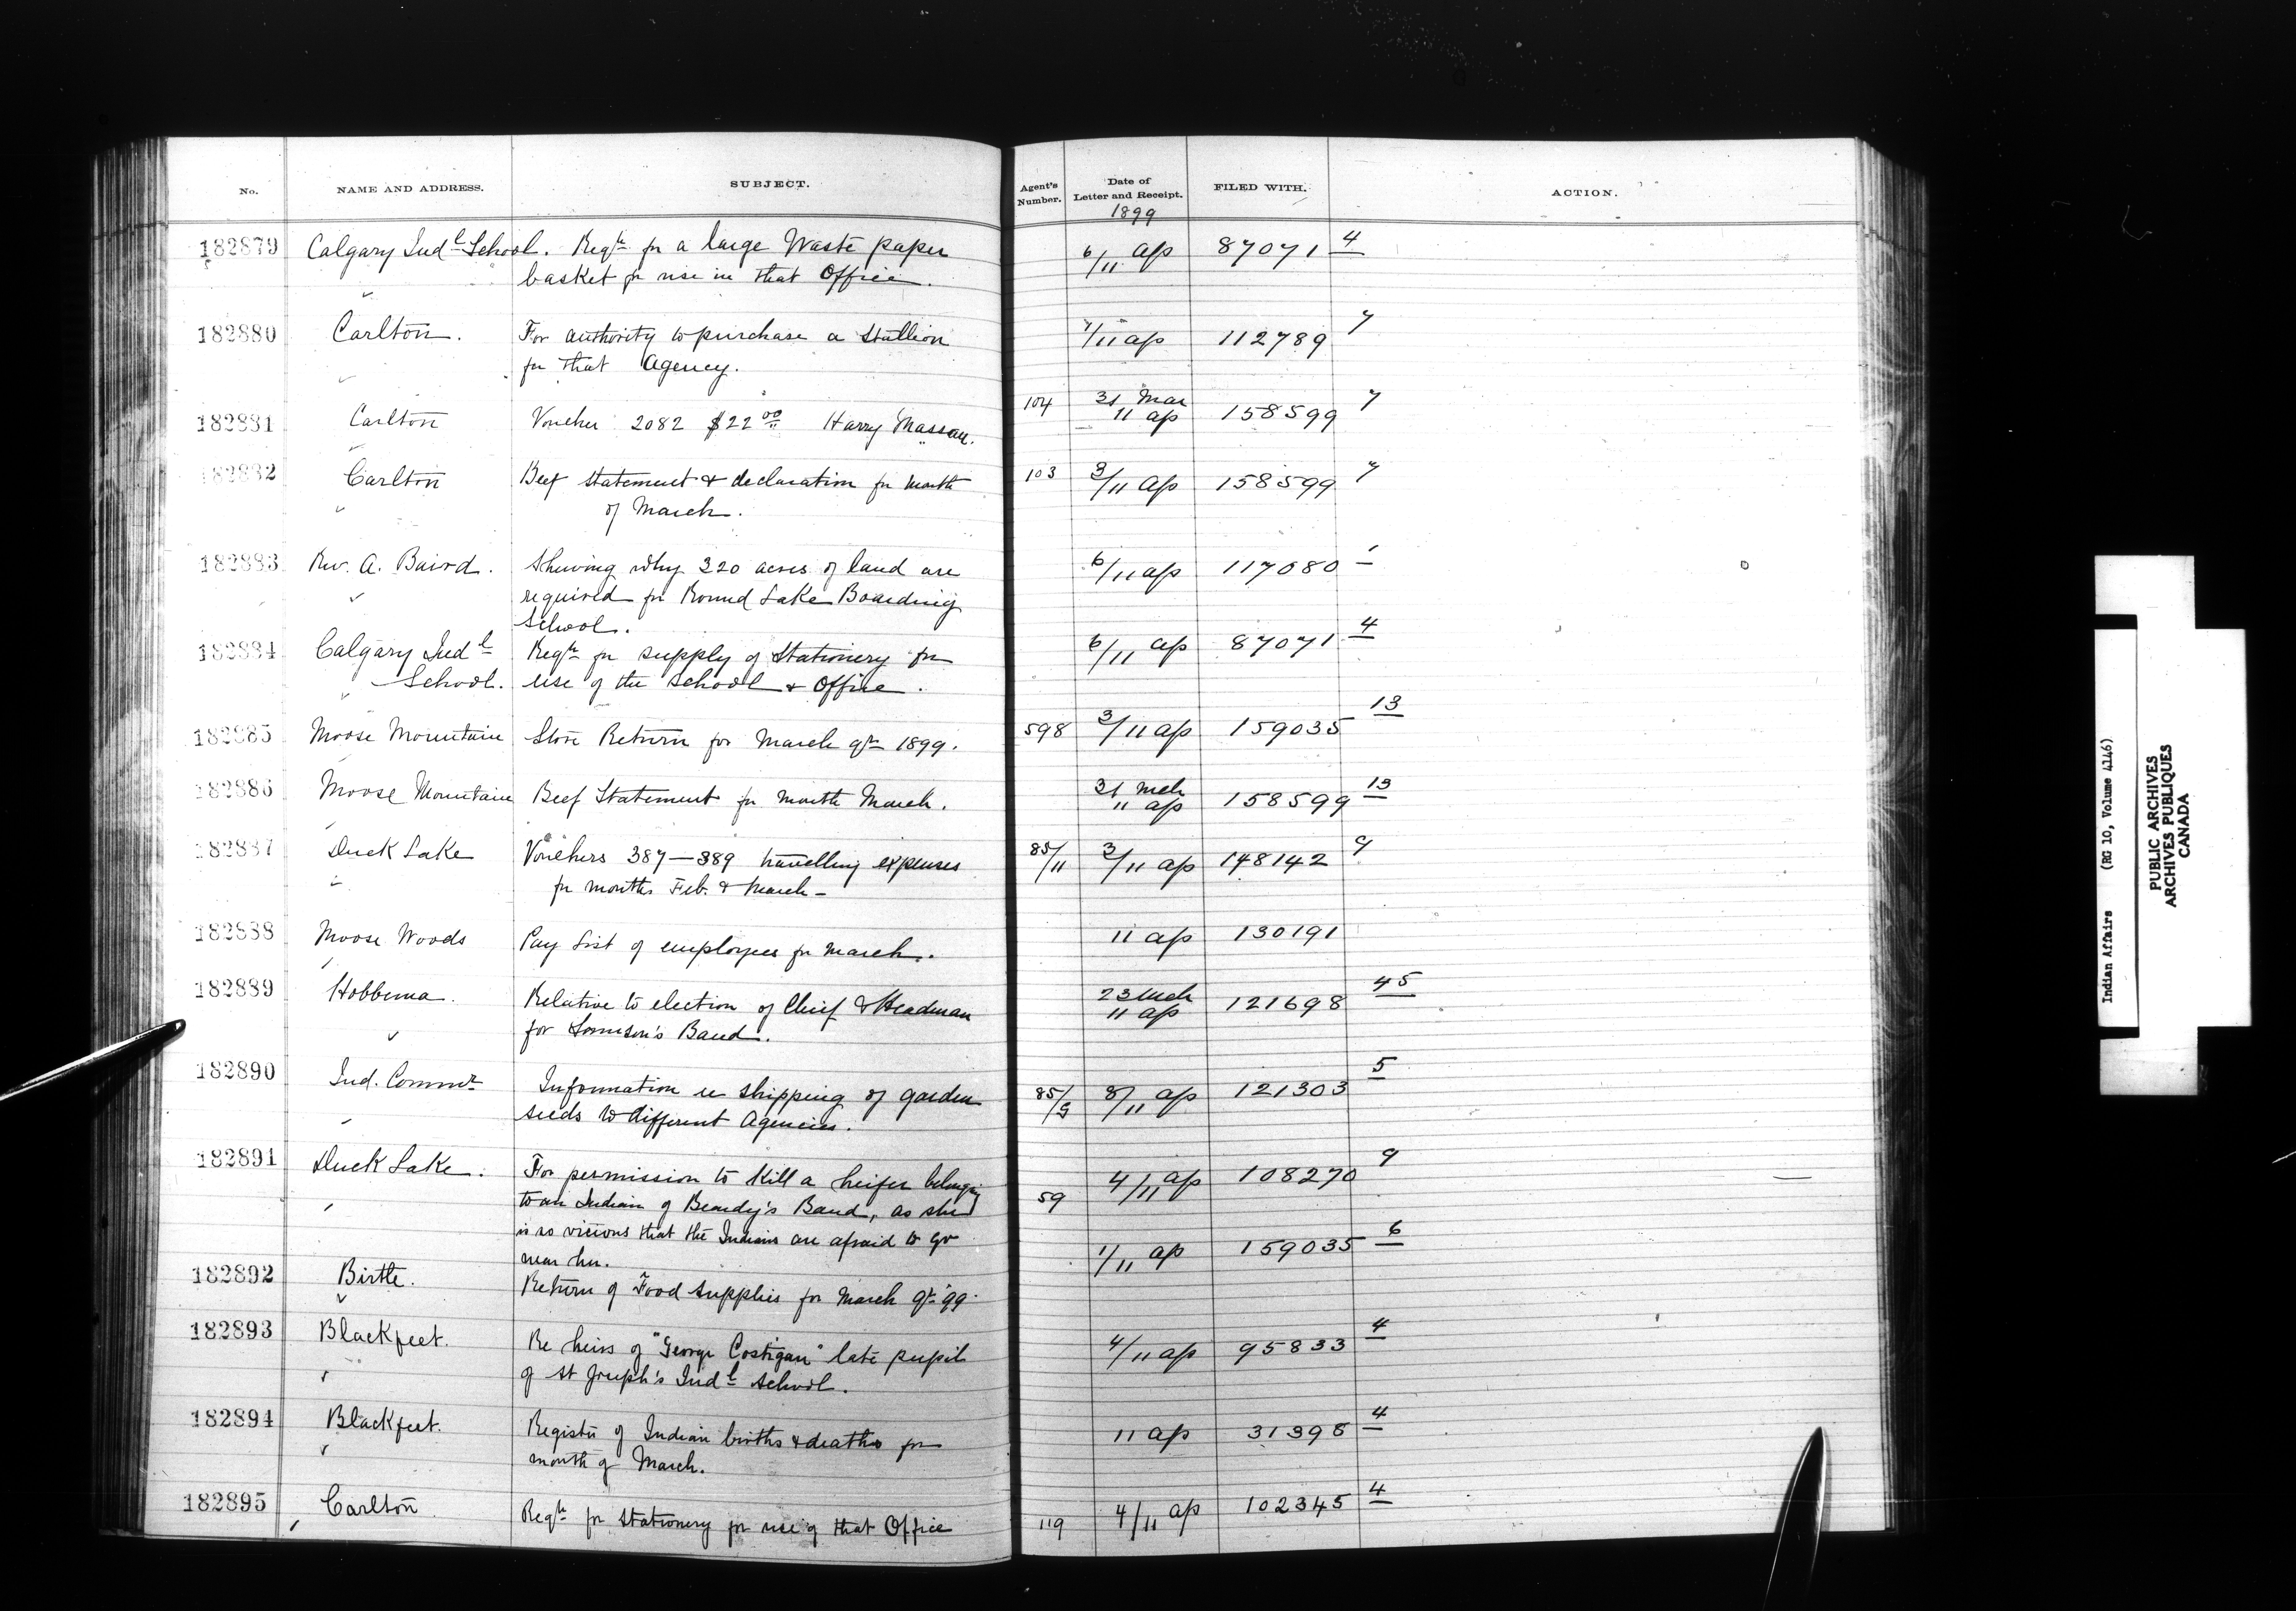 No. NAME AND ADDRESS. SUBJECT. Agent's Number. Date of Letter and Receipt. FILED WITH. ACTION.
1899
182879 Calgary Indl School. Reqn for a large Waste paper 6/11 ap 87071 4
basket for use in that Office.
182880 Carlton. For authority to purchase a Stallion 7/11 ap 112789 7
for that Agency.
182881 Carlton Voucher 2082 $22 00 Harry Massau. 104 31 Mar 11 ap 158599 7
182882 Carlton Beef statement & declaration for month 103 3/11 ap 158599 7
of March.
182883 Rev. A. Baird. Shewing why 320 acres of land are 6/11 ap 117080 1
required for Round Lake Boarding
School.
182884 Calgary Indl Reqn for supply of Stationery for 6/11 ap 87071 4
School. use of the school & Office.
182885 Moose Mountain Store Return for March qr 1899. 598 3/11 ap 159035 13
182886 Moose Mountain Beef Statement for month March. 31 Mch 11 ap 158599 13
182887 Duck Lake Vouchers 387—389 travelling expenses 85/11 3/11 ap 148142 9
for months Feb. & March—
182888 Moose Woods Pay List of employees for March. 11 ap 130191
182889 Hobbema. Relative to election of Chief & Headman 23 Mch 11 ap 121698 45
for Band.
182890 Ind. Commr Information re shipping of garden 85/9 8/11 ap 121303 5
seeds to different Agencies.
182891 Duck Lake. For permission to kill a heifer belonging 59 4/11 ap 108270 9
to an Indian of Beardy's Band, as she
is so vicious that the Indians are afraid to go
near her.
182892 Birtle. Return of Food supplies for March qr 99. 1/11 ap 159035 6
182893 Blackfeet. Re heirs of "George Costigan" late pupil 4/11 ap 95833 4
of St Joseph's Indl School.
182894 Blackfeet. Register of Indian births & deaths for 11 ap 31398 4
month of March.
182895 Carlton Reqn for stationery for use of that Office 119 4/11 ap 102345 4
Indian Affairs (RG 10, Volume 4146)
PUBLIC ARCHIVES
ARCHIVES PUBLIQUES
CANADA